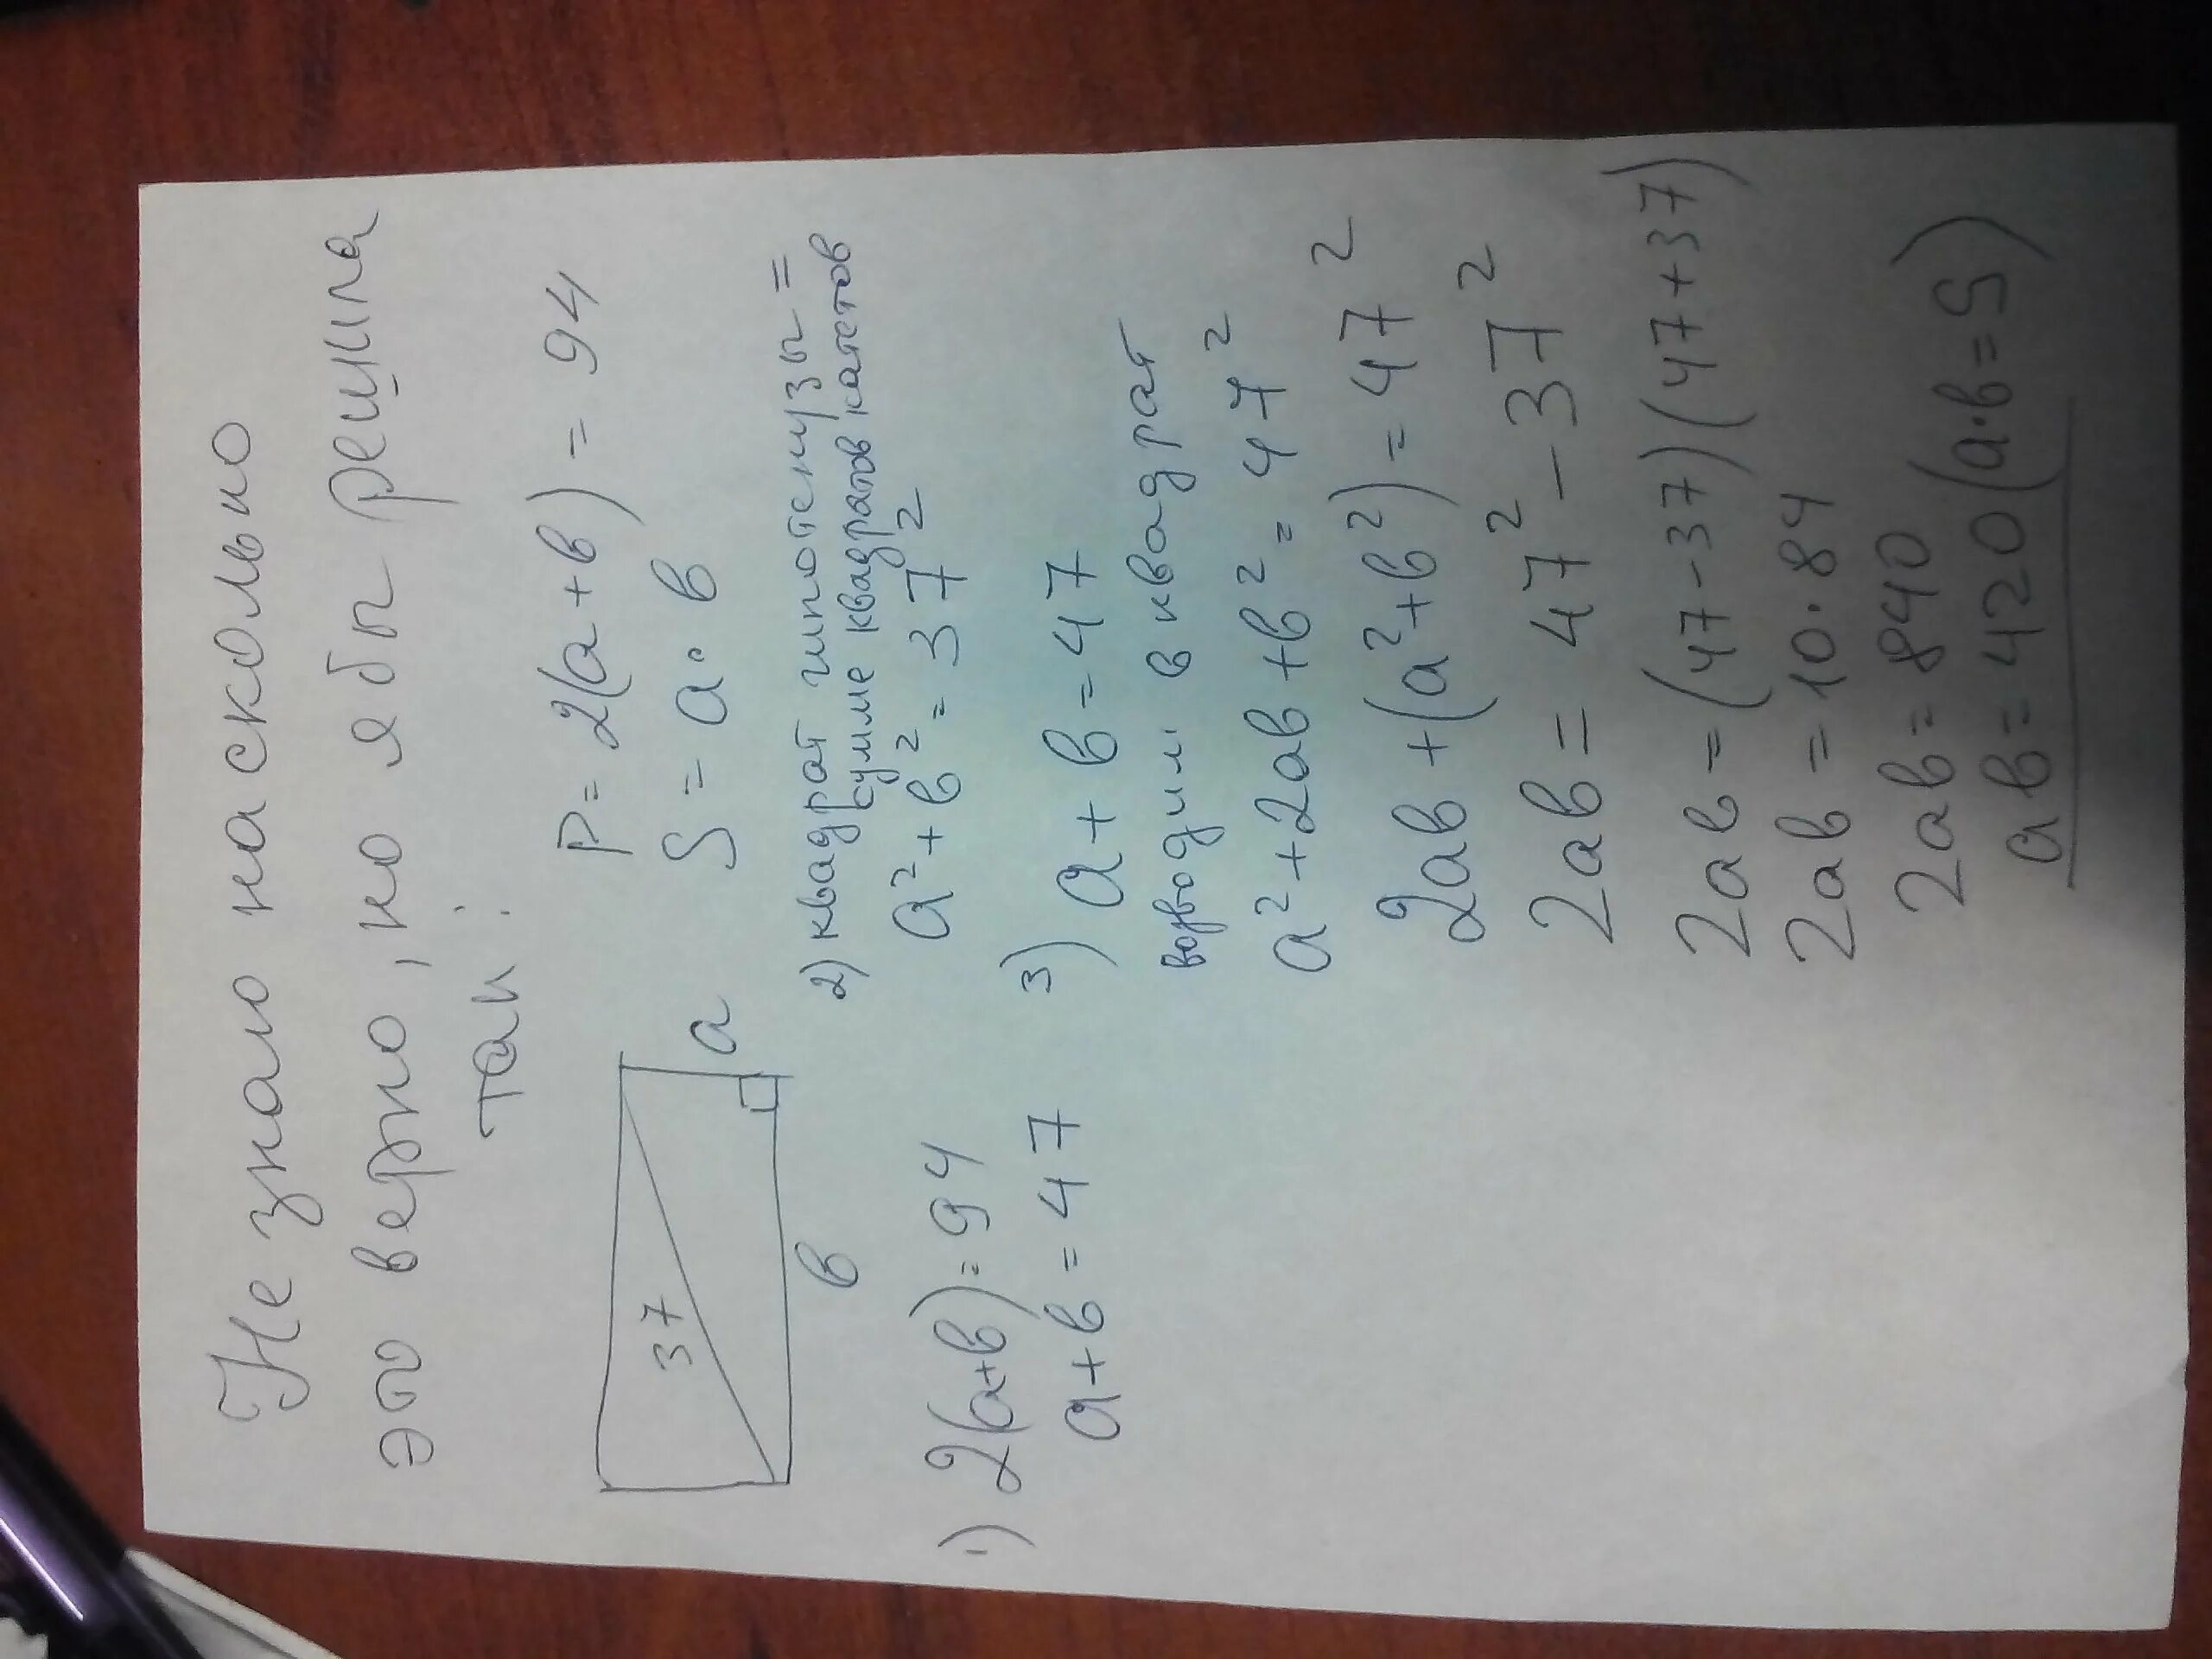 Не знаю насколько
это верно, но я бы решила
так:
P = 2(a+в) = 94
S = a · в
37
a
в
1) 2(a+в)=94
a+в = 47
2) квадрат гипотенузы =
сумме квадратов катетов
a²+в² = 37²
3) a+в = 47
возводим в квадрат
a²+2aв+в² = 47²
2aв+(a²+в²) = 47²
2aв = 47² - 37²
2aв = (47-37)(47+37)
2aв = 10·84
2aв = 840
aв = 420 (a·в = S)